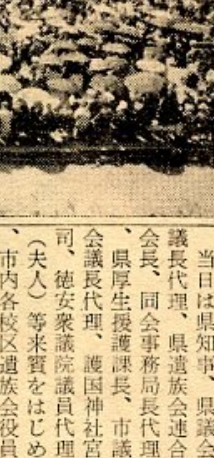 当日は県知事、県議会
議長代理、県遺族会連合
会長、同会事務局長代理
、県厚生援護課長、市議
会議長代理、護国神社宮
司、徳安衆議院議員代理
(夫人)等来賓をはじめ
、市内各校区遺族会役員